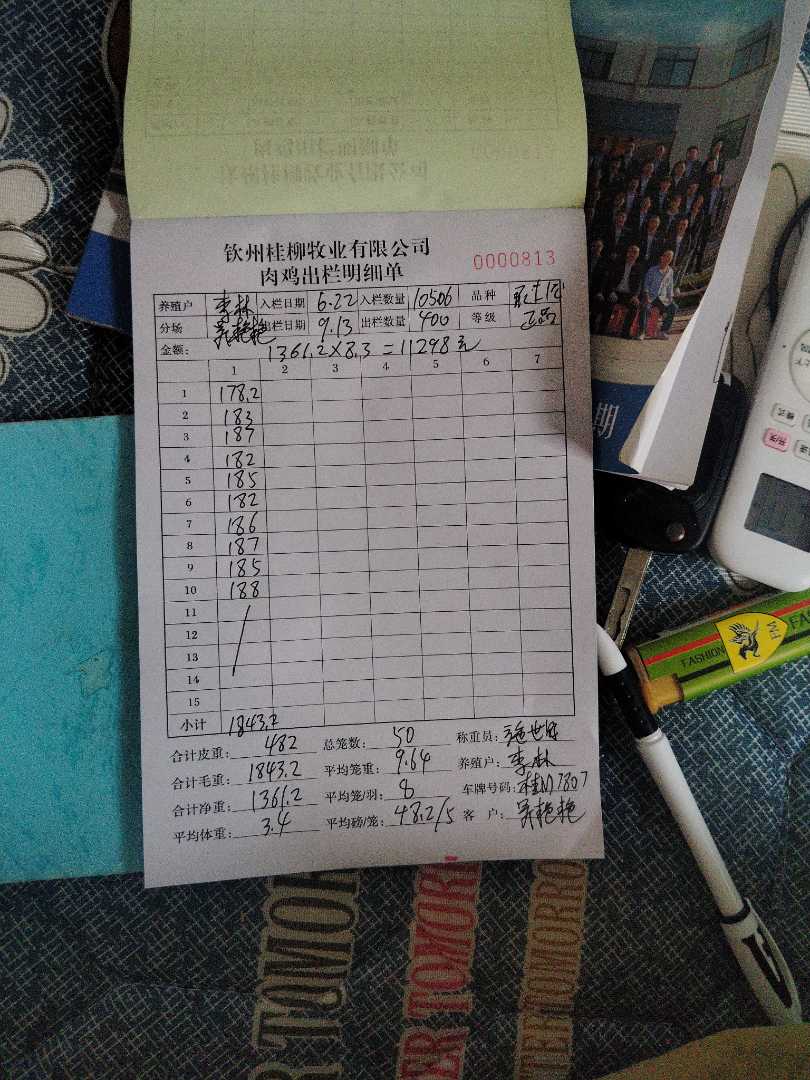 钦州桂柳牧业有限公司
肉鸡出栏明细单
0000813
养殖户 李林 入栏日期 6.22 入栏数量 10506 品种
分场 出栏日期 9.13 出栏数量 400 等级 正品
金额: 1361.2×8.3=11298元
1 2 3 4 5 6 7
1 178.2
2 183
3 187
4 182
5 185
6 182
7 186
8 187
9 185
10 188
11
12
13
14
15
小计 1843.2
合计皮重: 482 总笼数: 50 称重员:
合计毛重: 1843.2 平均笼重: 9.64 养殖户: 李林
合计净重: 1361.2 平均笼/羽: 8 车牌号码: 桂N7807
平均体重: 3.4 平均磅/笼: 48.2/5 客户: 吴艳艳
期
FM
FASHION
FA
模式
开/关
TOMOR
ER TOMORR
TERTOMORRO